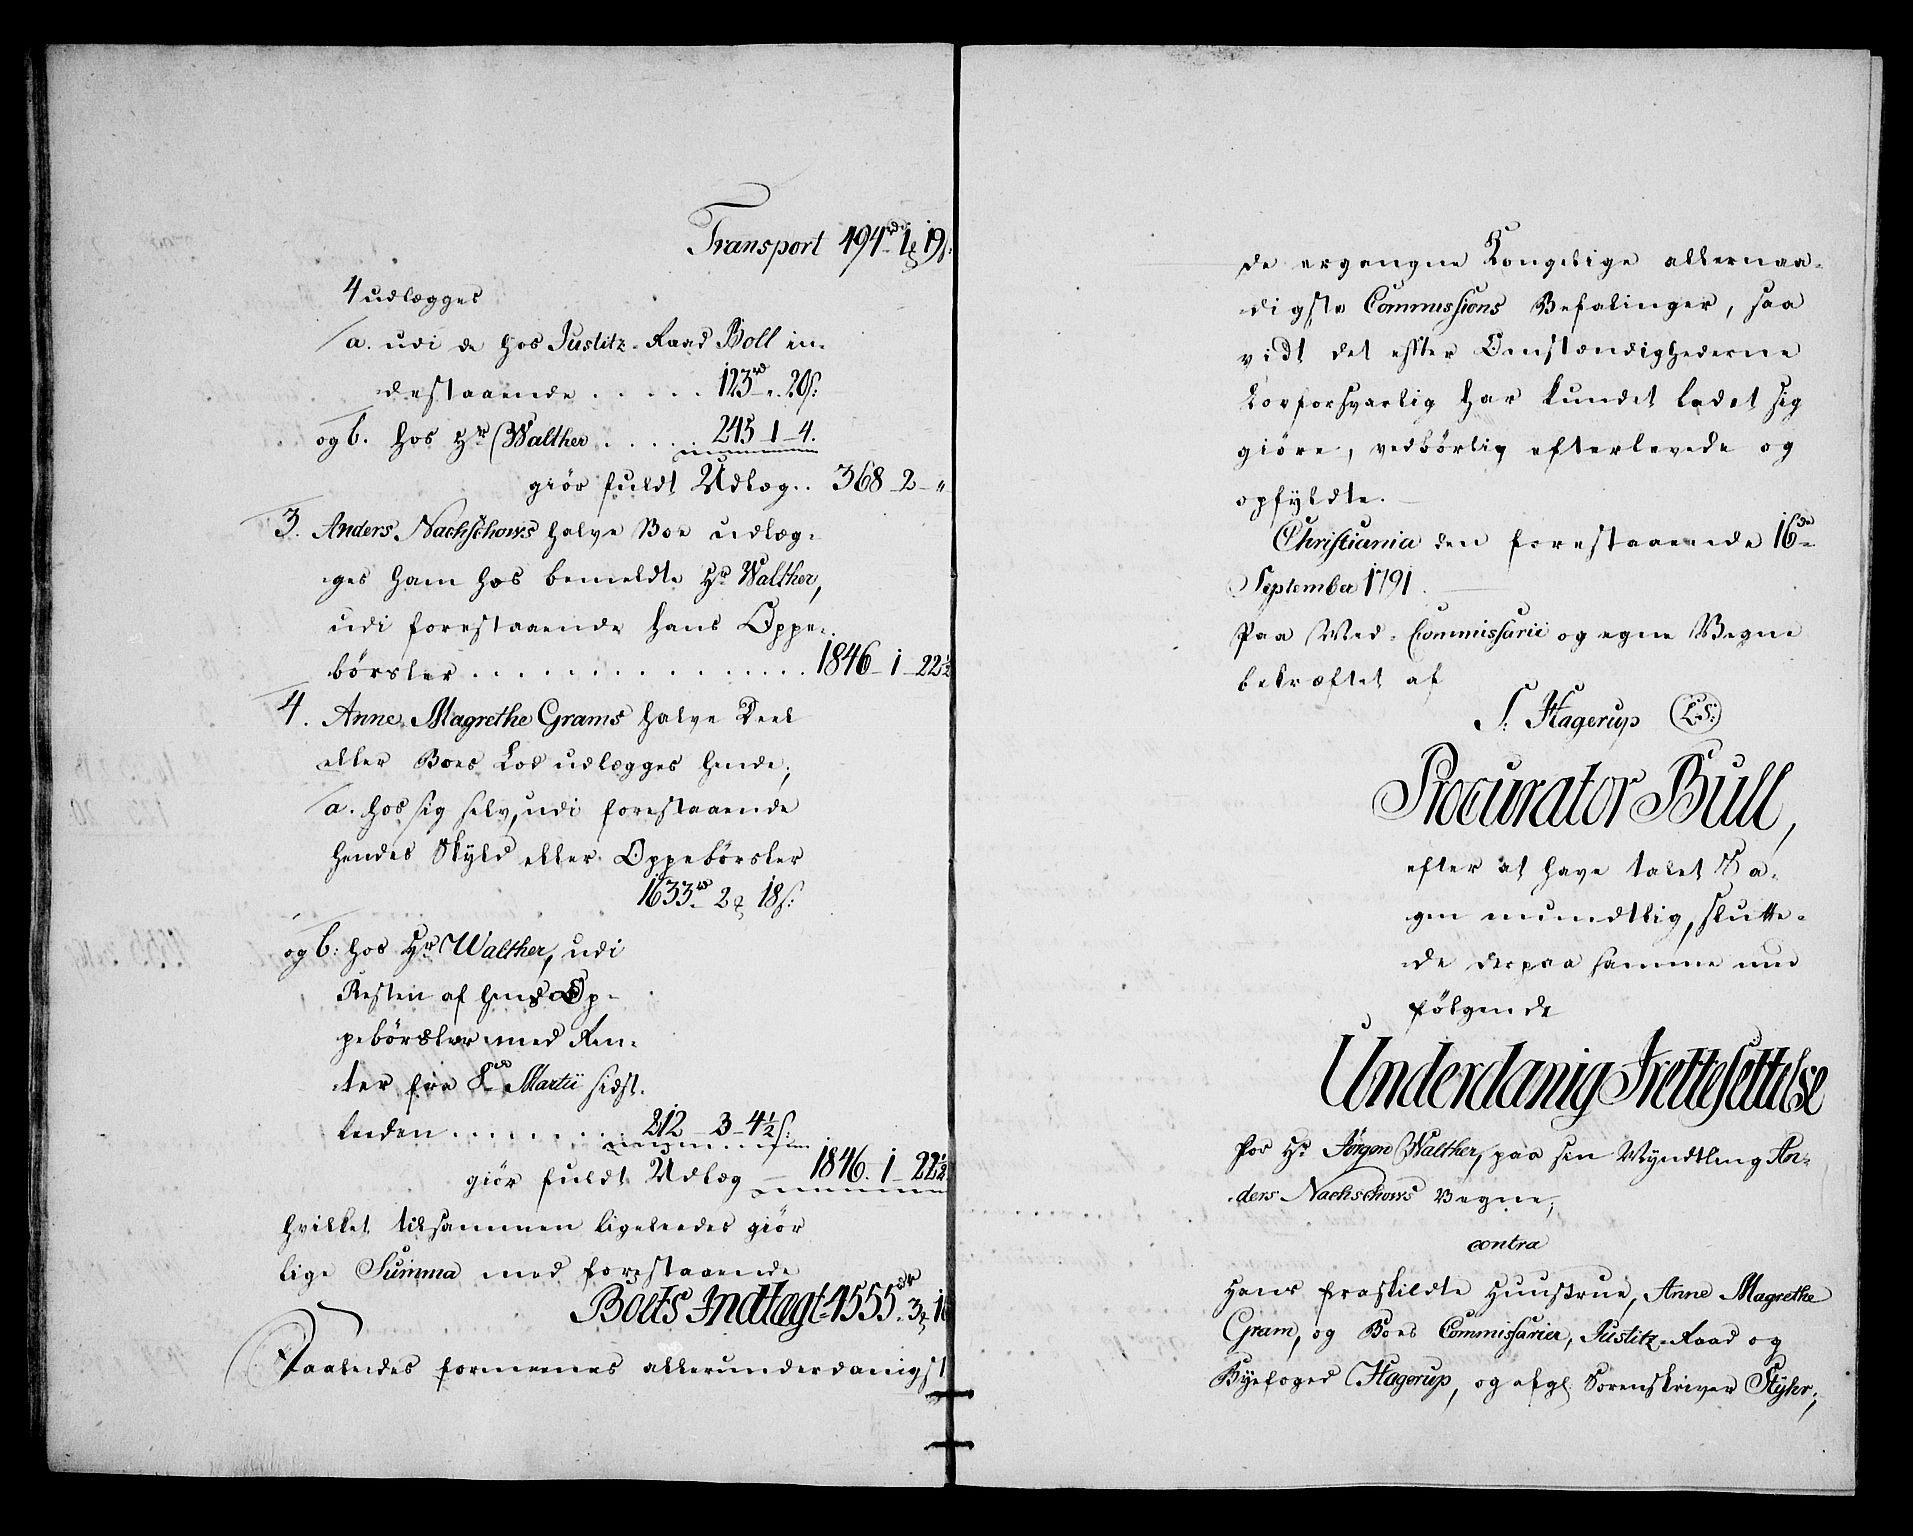 Transport 494rd 1 19s:
4 udlægges
a. udi de hos Justitz-Raad Boll in-
destaaende . . . . . 123rd „ 20s:
og b. hos Hr Walther . . . . . 245 - 1 - 4.
giör fuldt Udlæg . . 368 - 2 - „
3. Anders Nachschows halve Boe udlæg-
ges ham hos bemeldte Hr Walther,
udi forestaaende hans Oppe-
börsler . . . . . . . . . . . . . . 1846 - 1 - 22½
4. Anne Magrethe Grams halve Deel
eller Boes Lod udlægges hende;
a. hos sig selv, udi forestaaende
hendes Skyld eller Oppebörsler
1633rd 2 18s:
og b: hos Hr Walther, udi
Resten af hendes Op-
pebörsler med Ren-
ter fra 8de Martii sidst-
leeden . . . . . . . . 212 - 3 - 4½s:
giör fuldt Udlæg 1846 - 1 - 22½
hvilket tilsammen ligeleedes giör
lige Summa med forestaaende
Boets Indtægt 4555rd 3 16
Saaleedes formeenes allerunderdanigst
de ergangne Kongelige allernaa-
digste Commissions Befalinger, saa
vidt det efter Omstændighederne
lovforsvarlig har kundet ladet sig
giöre, vedbörlig efterlevede og
opfyldte.
Christiania den forestaaende 16de
September 1791.
Paa Med-Commissarii og egne Vegne
bekræftet af
S: Hagerup (LS:)
Procurator Bull,
efter at have talet Sa-
gen mundtlig, slutte-
de derpaa samme med
fölgende
Underdanig Irettesættelse
for Hr Jörgen Walther, paa sin Myndtling An-
ders Nachschows Vegne,
contra
Hans fraskildte Huustrue, Anne Magrethe
Gram, og Boes Commissarier, Justitz-Raad og
Byefoged Hagerup, og afgl. Sorenskriver Styhr;